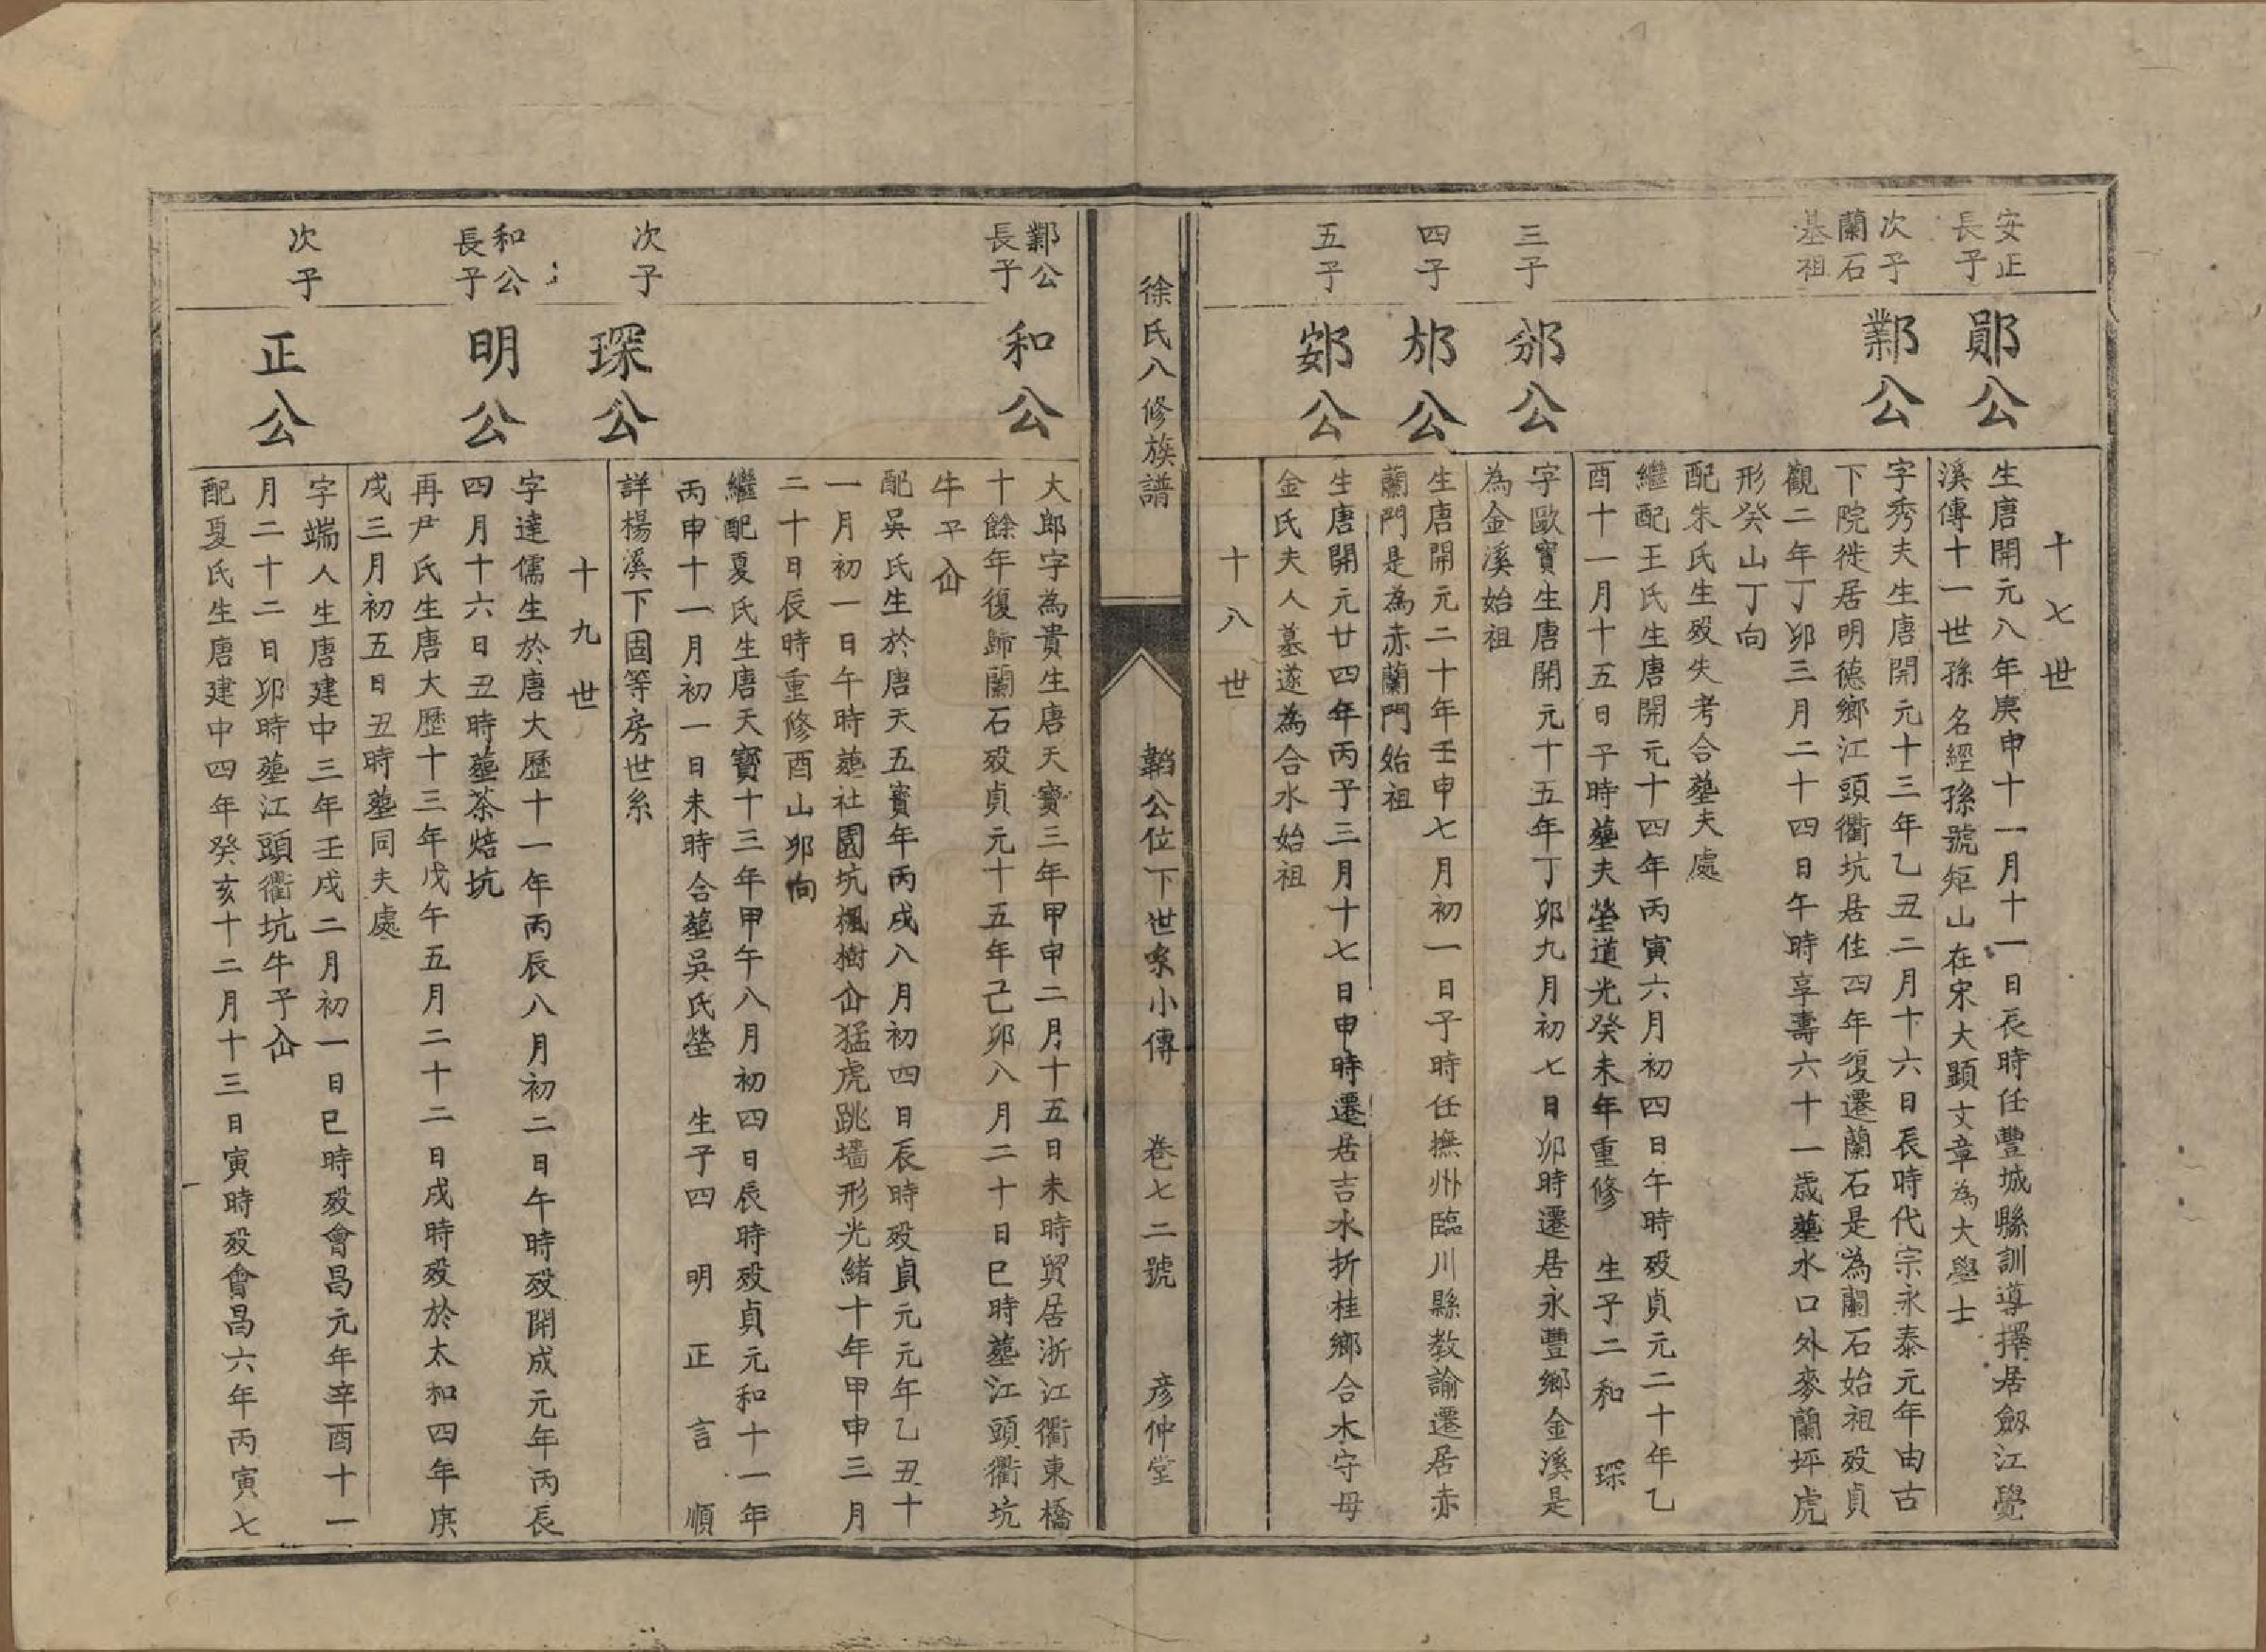 十七世
安正
長子
鄖公
生唐開元八年庚申十一月十一日長時任豐城縣訓導擇居劔江覺
溪傳十一世孫名經孫號矩山在宋大顯文章為大學士
次子
蘭石
基祖
鄴公
字秀夫生唐開元十三年乙丑二月十六日辰時代宗永泰元年由古
下院徙居明德鄉江頭衢坑居住四年復遷蘭石是為蘭石始祖殁貞
觀二年丁卯三月二十四日午時享壽六十一歲塟水口外麥蘭坪虎
形癸山丁向
配朱氏生殁失考合塟夫處
繼配王氏生唐開元十四年丙寅六月初四日午時殁貞元二十年乙
酉十一月十五日子時塟夫塋道光癸未年重修 生子二 和 琛
三子
邠公
字歐寶生唐開元十五年丁卯九月初七日卯時遷居永豐鄉金溪是
為金溪始祖
四子
邡公
生唐開元二十年壬申七月初一日子時任撫州臨川縣教諭遷居赤
蘭門是為赤蘭門始祖
五子
公
生唐開元廿四年丙子三月十七日申時遷居吉水折桂鄉合木守母
金氏夫人墓遂為合水始祖
十八世
徐氏八修族譜
韜公位下世系小傳
卷七二號
彦仲堂
鄴公
長子
和公
大郎字為貴生唐天寶三年甲申二月十五日未時貿居浙江衢東橋
十餘年復歸蘭石殁貞元十五年己卯八月二十日巳時塟江頭衢坑
牛子仚
配吳氏生於唐天五寶年丙戌八月初四日辰時殁貞元元年乙丑十
一月初一日午時塟社園坑楓樹仚猛虎跳墻形光緒十年甲申三月
二十日辰時重修酉山卯向
繼配夏氏生唐天寶十三年甲午八月初四日辰時殁貞元和十一年
丙申十一月初一日未時合塟吳氏塋 生子四 明 正 言 順
次子
琛公
詳楊溪下固等房世系
十九世
和公
長子
明公
字達儒生於唐大歷十一年丙辰八月初二日午時殁開成元年丙辰
四月十六日丑時塟茶焙坑
再尹氏生唐大歷十三年戊午五月二十二日戌時殁於太和四年庚
戌三月初五日丑時塟同夫處
次子
正公
字端人生唐建中三年壬戌二月初一日巳時殁會昌元年辛酉十一
月二十二日卯時塟江頭衢坑牛子仚
配夏氏生唐建中四年癸亥十二月十三日寅時殁會昌六年丙寅七